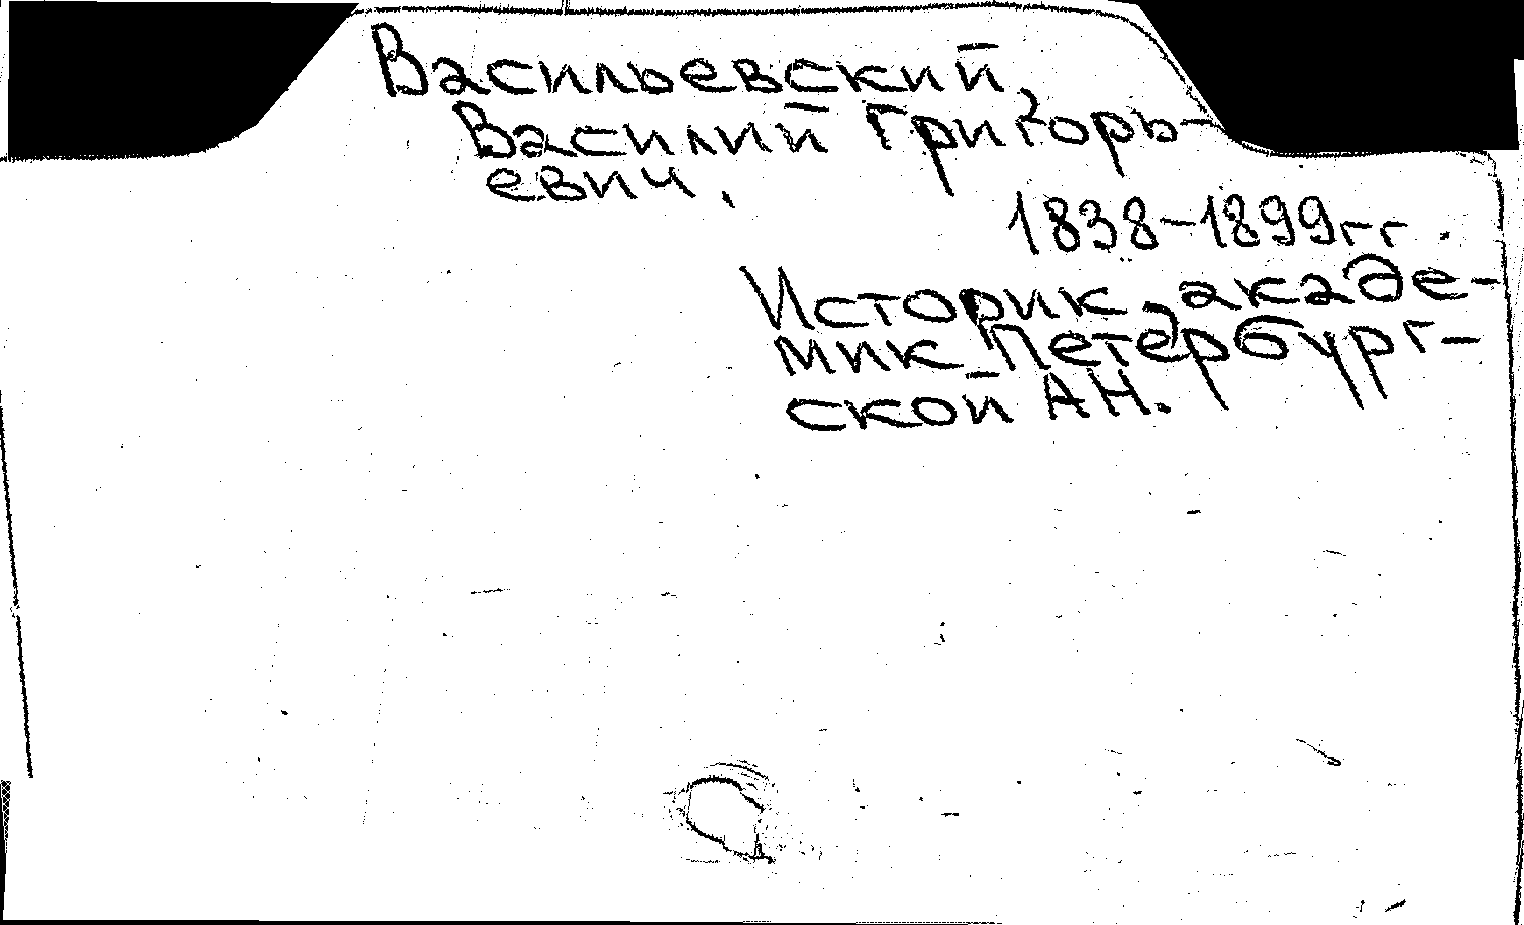 Васильевский,
Василий Григорь-
евич.
1838-1899гг.
Историк, акаде-
мик Петербург-
ской АН.